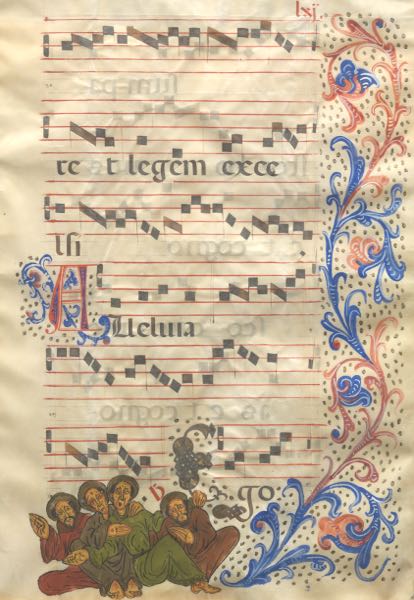 lxij.
te t legem exce
lsi
Alleluia
℣ Ego